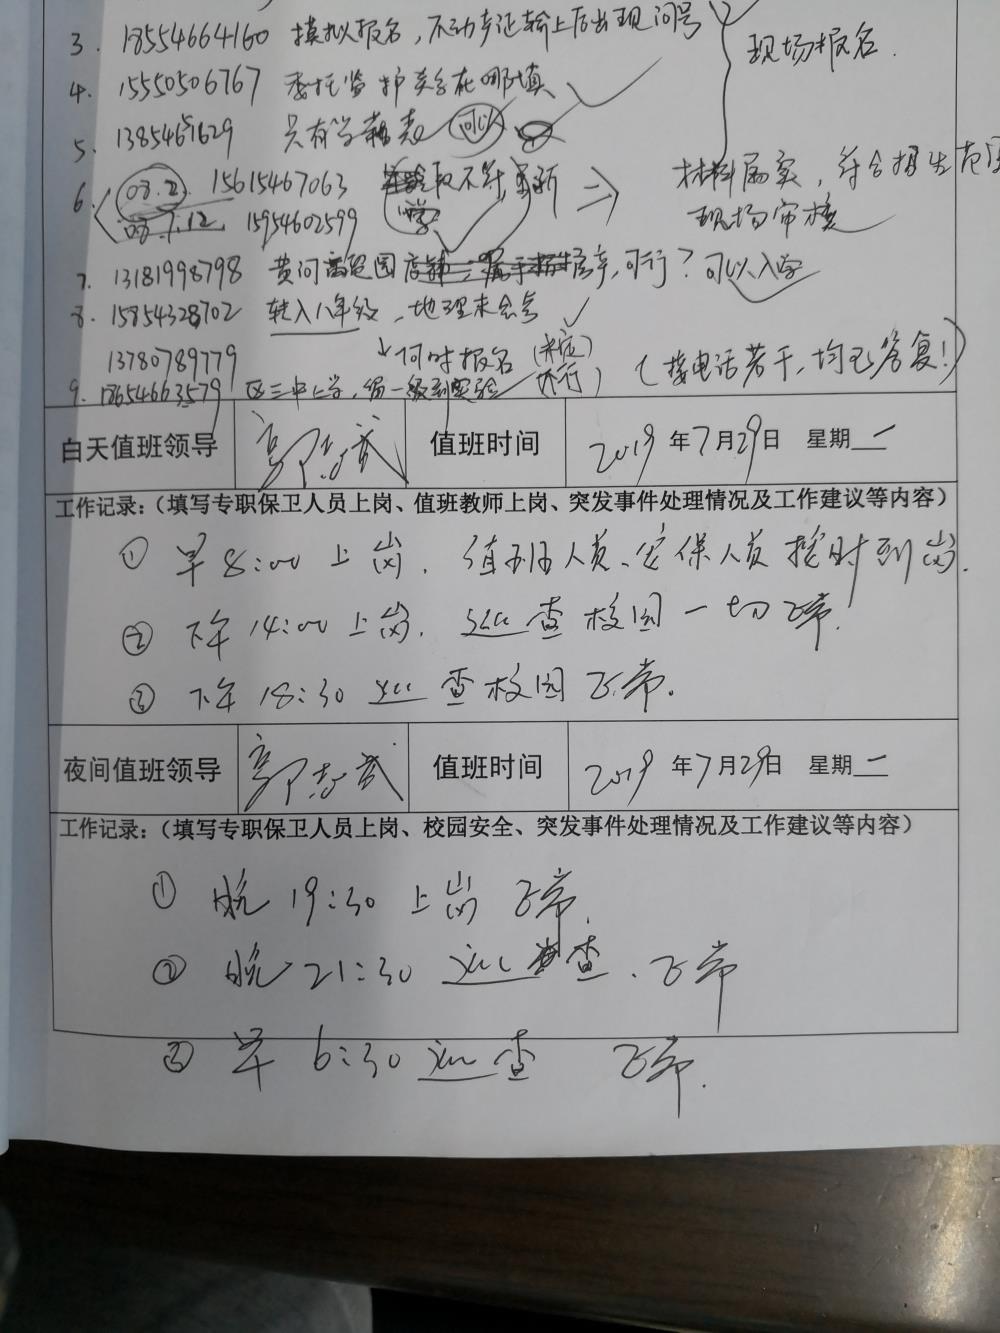 3. 18554664160 模拟报名，不动产证输上后出现问号
现场报名.
4. 15550506767 委托监护关系在哪填
5. 13854651629 只有学籍表 可以
6. 08.2. 15615467063 不符 ⇒ 材料属实，符合招生范围
08.7.12 15954602599 现场审核
7. 13181998798 黄河 园店 可行？可以入学
8. 15854328702 转入八年级，地理未会考
13780789779 何时报名 (未定) (接电话若干，均已答复!)
9. 18654663579 区三中上学，留一级到实验 不行)
白天值班领导 郭志武 值班时间 2019年7月29日 星期一
工作记录：（填写专职保卫人员上岗、值班教师上岗、突发事件处理情况及工作建议等内容）
① 早8:00上岗. 值班人员、安保人员按时到岗.
② 下午14:00上岗. 巡查校园一切正常.
③ 下午18:30巡查校园正常.
夜间值班领导 郭志武 值班时间 2019年7月29日 星期一
工作记录：（填写专职保卫人员上岗、校园安全、突发事件处理情况及工作建议等内容）
① 晚19:30上岗 正常.
② 晚21:30巡查. 正常
③ 早6:30巡查 正常.